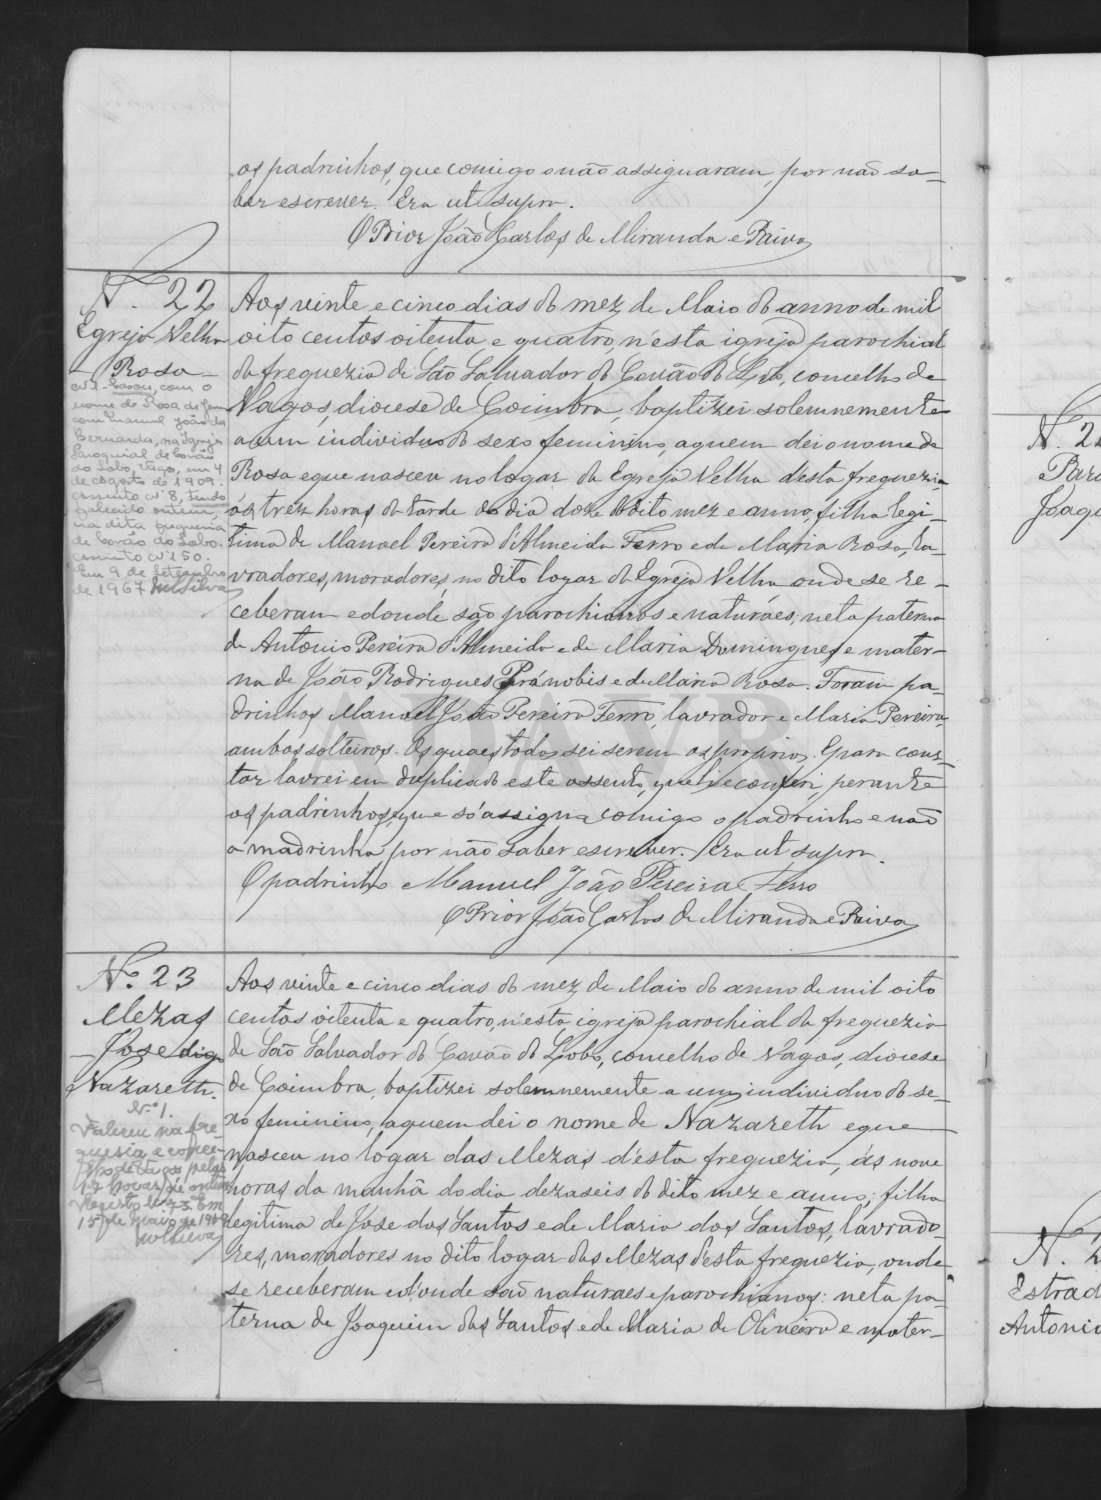 os padrinhos, que comigo não assignaram, por não sa-
ber escrever. Era ut supra.
O Prior João Carlos de Miranda e Paiva
N. 22
Egreja Velha
Rosa
Nº 1 - Casou, com o
nome de Rosa de Jesus
com Manuel João da
Bernarda, na igreja
Paroquial de Covão
do Lobo, Vagos, em 4
de agosto de 1909.
assento nº 8, tendo
falecido ontem,
na dita freguesia
de Covão do Lobo.
assento nº 150.
Em 9 de Setembro
de 1967
Aos vinte e cinco dias do mez de Maio do anno de mil
oito centos oitenta e quatro, n'esta igreja parochial
da freguezia de São Salvador do Covão do Lobo, concelho de
Vagos, diocese de Coimbra, baptizei solemnemente
a um individuo do sexo feminino, a quem dei o nome de
Rosa e que nasceu no logar da Egreja Velha d'esta freguezia
ás trez horas da tarde do dia doze do dito mez e anno, filha legi-
tima de Manoel Pereira d'Almeida Ferro e de Maria Rosa, la-
vradores, moradores, no dito logar da Egreja Velha onde se re-
ceberam e donde são parochianos e naturáes, neta paterna
de Antonio Pereira d'Almeida e de Maria Domingues e mater-
na de João Rodrigues e de Maria Rosa. Foram pa-
drinhos Manoel João Pereira Ferro, lavrador e Maria Pereira,
ambos solteiros. Os quaes todos sei serem os proprios. E para cons-
tar lavrei em duplicado este assento, que li e conferi, perante
os padrinhos, que só assigna comigo o padrinho e não
a madrinha por não saber escrever. Era ut supra.
O padrinho Manuel João Pereira Ferro
O Prior João Carlos de Miranda e Paiva
Nº. 23
Mezas
Nazareth.
Nº 1.
Faleceu na fre-
guesia e conce-
lho de Vagos pelas
horas de ontem
Registo nº 73. Em
15 de Maio de
Aos vinte e cinco dias do mez de Maio do anno de mil oito
centos oitenta e quatro, n'esta igreja parochial da freguezia
de São Salvador do Covão do Lobo, concelho de Vagos, diocese
de Coimbra, baptizei solemnemente a um individuo do se-
xo feminino, a quem dei o nome de Nazareth e que
nasceu no lógar das Mezas d'esta freguezia, ás nove
horas da manhã do dia dezaseis do dito mez e anno; filha
legitima de José dos Santos e de Maria dos Santos, lavrado-
res, moradores no dito logar das Mezas d'esta freguezia, onde
se receberam e d'onde são naturaes e parochianos: neta pa-
terna de Joaquim dos Santos e de Maria de Oliveira e mater-
N. 2
Joaqu
N. 2
Estrad
Antonio